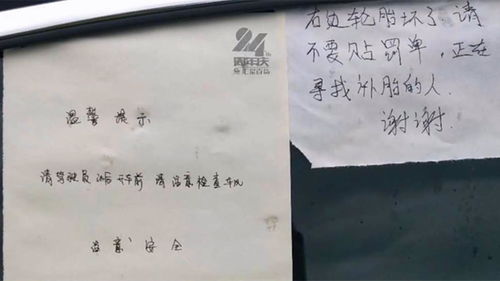 24
周年庆
温馨提示
请驾驶员
开车前 请注意检查车况
注意安全
右边轮胎坏了.请
不要贴罚单,正在
寻找补胎的人.
谢谢.